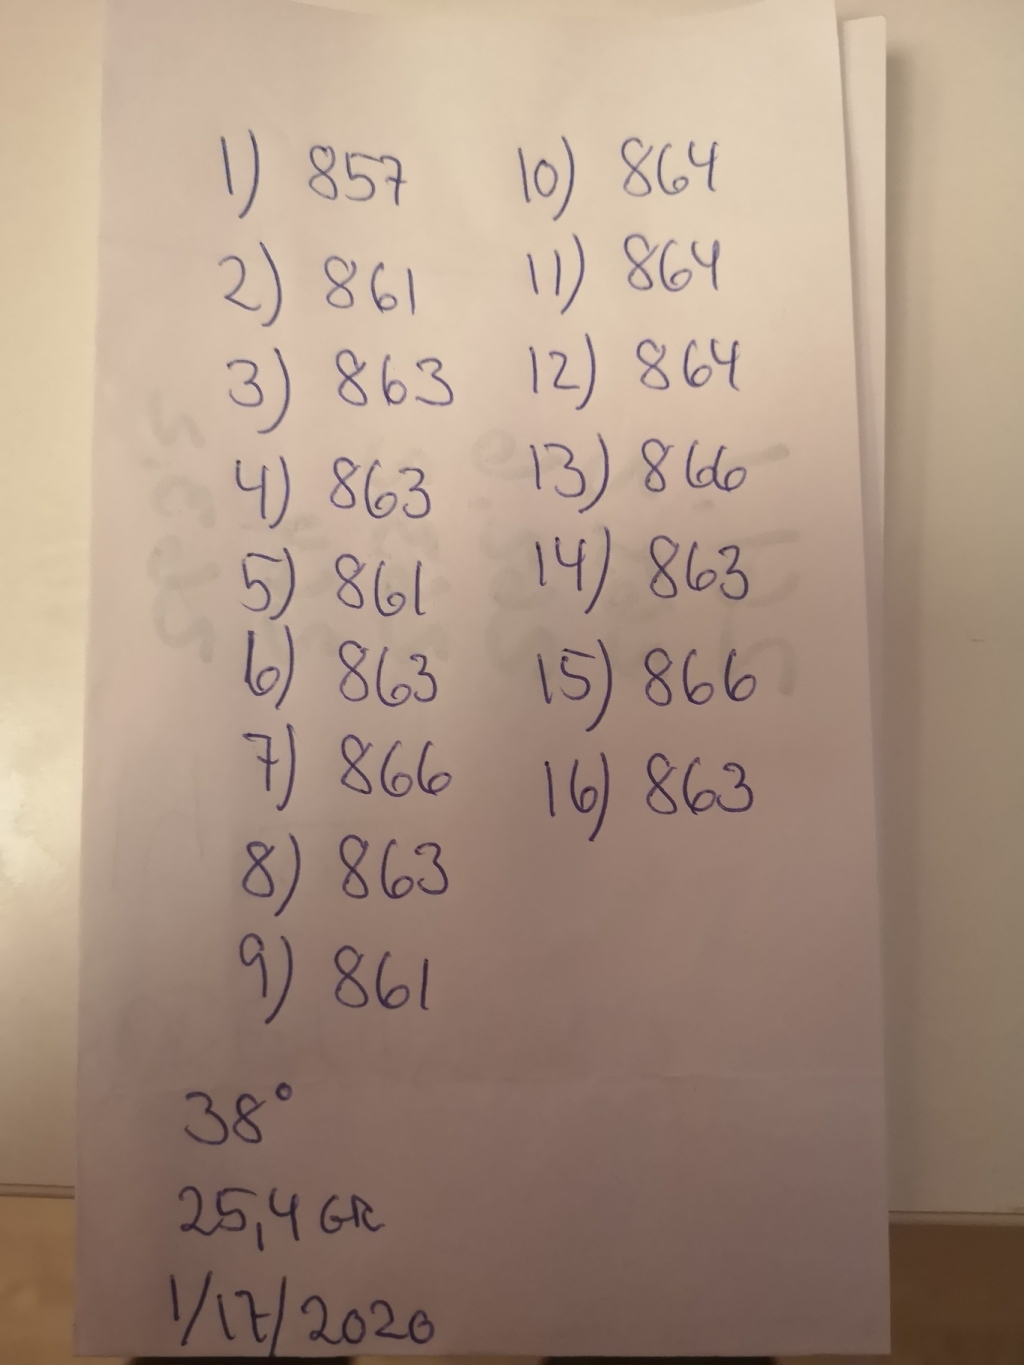 1) 857
2) 861
3) 863
4) 863
5) 861
6) 863
7) 866
8) 863
9) 861
10) 864
11) 864
12) 864
13) 866
14) 863
15) 866
16) 863
38°
25,4 GR
1/17/2020